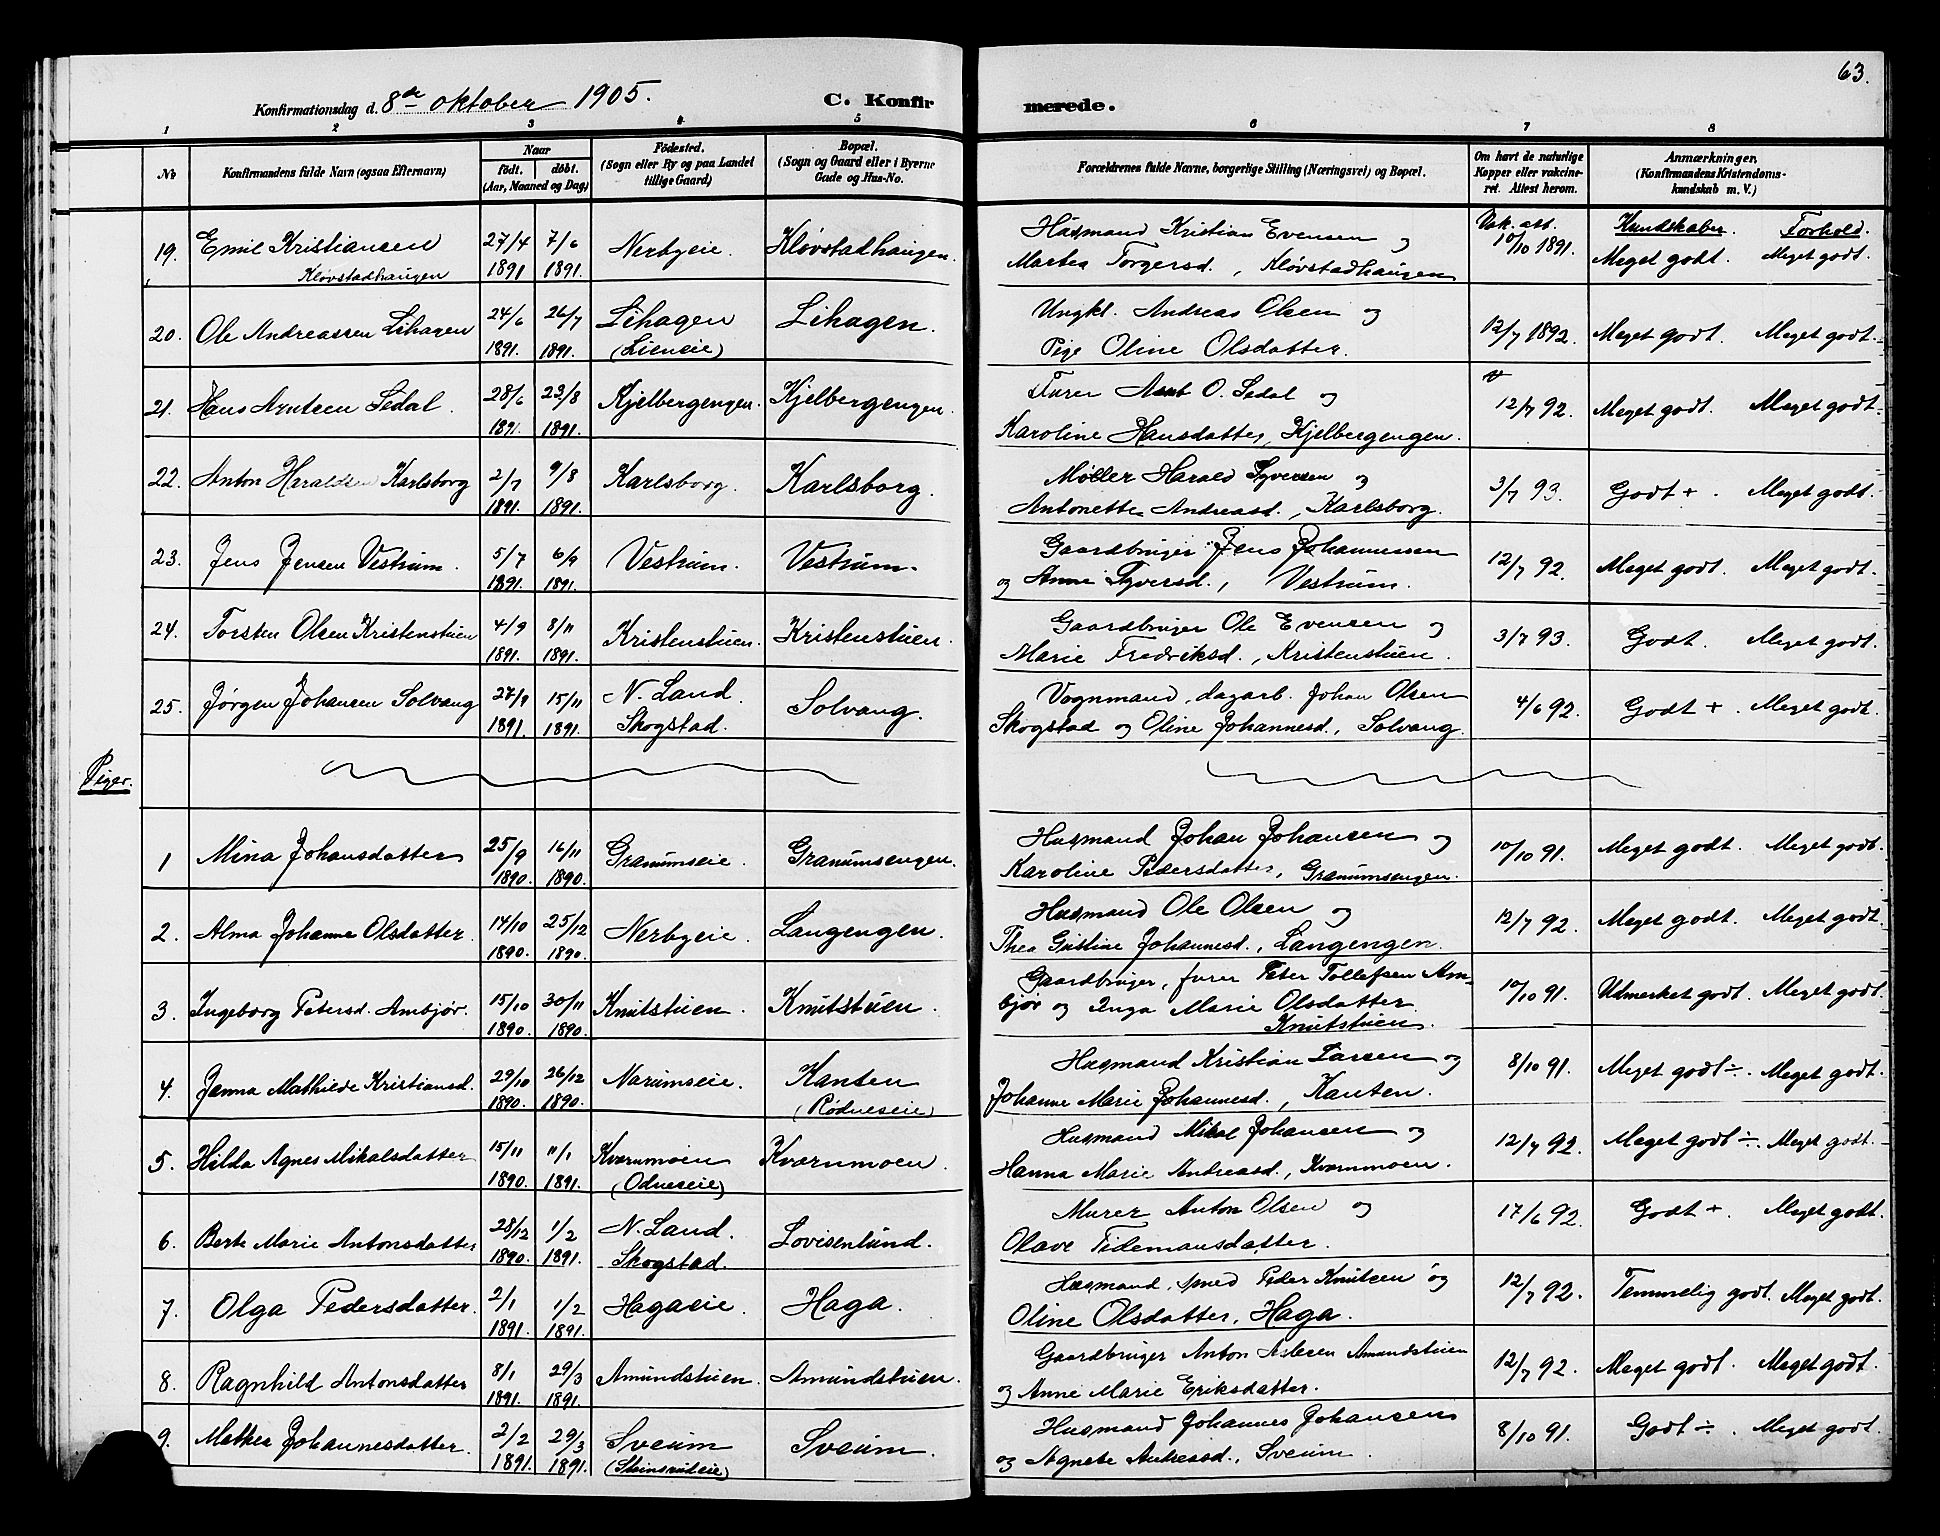 63.
Konfirmationsdag d. 8de oktober 1905. C. Konfirmerede.
1 2 3 4 5 6 7 8
No
Konfirmandens fulde Navn (ogsaa Efternavn)
Naar
født. døbt.
(Aar, Maaned og Dag)
Fødested.
(Sogn eller By og paa Landet
tillige Gaard)
Bopæl.
(Sogn og Gaard eller i Byerne
Gade og Hus-No.
Forældrenes fulde Navne, borgerlige Stilling (Næringsvei) og Bopæl.
Om havt de naturlige
Kopper eller vakcine-
ret. Attest herom.
Anmærkninger.
(Konfirmandens Kristendoms-
kundskab m. V.)
Vak. att. Kundskaber. Forhold.
19. Emil Kristiansen 27/4 7/6 Nerbyeie. Kløvstadhaugen. Husmand Kristian Evensen og 10/10 1891. Meget godt. Meget godt.
Kløvstadhaugen 1891 1891. Martea Torgersd., Kløvstadhaugen
20. Ole Andreassen Lihagen 24/6 26/7 Lihagen Lihagen. Ungkl. Andreas Olsen og 12/7 1892. Meget godt. Meget godt.
1891. 1891. (Lieneie) Pige Oline Olsdatter.
21. Hans Arntsen Sedal. 28/6 23/8 Kjelbergengen. Kjelbergengen. Furer Arnt O. Sedal og 12/7 92. Meget godt. Meget godt.
1891. 1891. Karoline Hansdatter, Kjelbergengen.
22. Anton Haraldsen Karlsborg 2/7 9/8 Karlsborg. Karlsborg. Møller Harald Syversen og 3/7 93. Godt +. Meget godt.
1891. 1891. Antonette Andreasd., Karlsborg.
23. Jens Jensen Vestrum. 5/7 6/9 Vestrum. Vestrum. Gaardbruger Jens Johannessen 12/7 92. Meget godt. Meget godt.
1891. 1891. og Anne Syversd., Vestrum.
24. Torsten Olsen Kristenstuen 4/9 8/11 Kristenstuen. Kristenstuen. Gaardbruger Ole Evensen og 3/7 93. Godt. Meget godt.
1891. 1891. Marie Fredriksd., Kristenstuen.
25. Jørgen Johansen Solvang 27/9 15/11 N. Land. Solvang. Vognmand, dagarb. Johan Olsen 4/6 92. Godt +. Meget godt.
1891. 1891. Skogstad. Skogstad og Oline Johannesd., Solvang
Piger.
1 Mina Johansdatter 25/9 16/11 Granumseie. Granumsengen. Husmand Johan Johansen og 10/10 91. Meget godt. Meget godt.
1890. 1890. Karoline Pedersdatter, Granumsengen.
2. Alma Johanne Olsdatter. 14/10 25/12 Nerbyeie. Langengen. Husmand Ole Olsen og 12/7 92. Meget godt. Meget godt.
1890. 1890. Thea Gustine Johannesd., Langengen.
3. Ingeborg Petersd. Ambjør. 15/10 30/11 Knutstuen. Knutstuen. Gaardbruger, furer Peter Tollefsen Am- 10/10 91. Udmerket godt. Meget godt.
1890. 1890. bjør og Inga Marie Olsdatter
Knutstuen.
4. Janna Mathilde Kristiansd. 29/10 26/12 Narumseie. Kanten Husmand Kristian Larsen og 8/10 91. Meget godt ÷. Meget godt.
1890. 1890. (Rødneseie) Johanne Marie Johannesd., Kanten.
5. Hilda Agnes Mikalsdatter 15/11 11/1 Kvernmoen Kvernmoen. Husmand Mikal Johansen og 12/7 92. Meget godt ÷. Meget godt.
1890. 1891. (Odneseie) Hanna Marie Andreasd., Kvernmoen.
6. Berte Marie Antonsdatter 28/12 1/2 N. Land. Lovisenlund. Murer Anton Olsen og 17/6 92. Godt +. Meget godt.
1890. 1891. Skogstad. Olave Tidemansdatter.
7. Olga Pedersdatter. 2/1 1/2 Hagaeie. Haga. Husmand, smed Peder Knutsen og 12/7 92. Temmelig godt. Meget godt.
1891. 1891. Oline Olsdatter, Haga.
8. Ragnhild Antonsdatter 8/1 29/3 Amundstuen. Amundstuen. Gaardbruger Anton Aslesen Amundstuen 12/7 92. Meget godt. Meget godt.
1891. 1891. og Anne Marie Eriksdatter.
9. Mathea Johannesdatter. 2/2 29/3 Sveum Sveum. Husmand Johannes Johansen 8/10 91. Godt ÷. Meget godt.
1891. 1891. (Steinsrudeie) og Agnete Andreasd., Sveum.